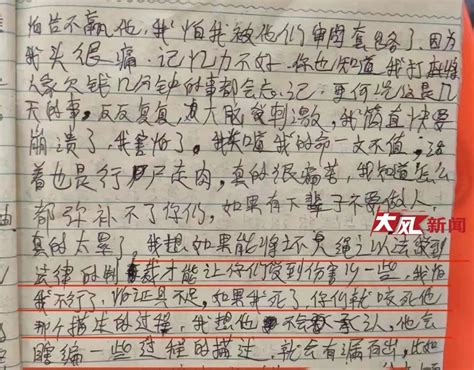 怕告不赢他，我怕我被他们审问套包务了，因为
我头很痛，记忆力不好，你也知道，我打麻将
人家欠钱几分钟的事都会忘记，更何况这是几
天的事，反反复复，大脑受刺激，我简直快要
崩溃了，我害怕了，我知道我的命一文不值，活
着也是行尸走肉，真的很痛苦，我知道怎么
都弥补不了你们，如果有下辈子不要做人，
真的太累了，我想如果能将之以法
大风新闻
法律的制裁才能让你们受到伤害少一些，我怕
我不行了，怕证具不足，如果我死了，你们就咬死他
那个描述的过程，我想他不会承认，他会
瞎编一些过程的描述，就会有漏百出，比如